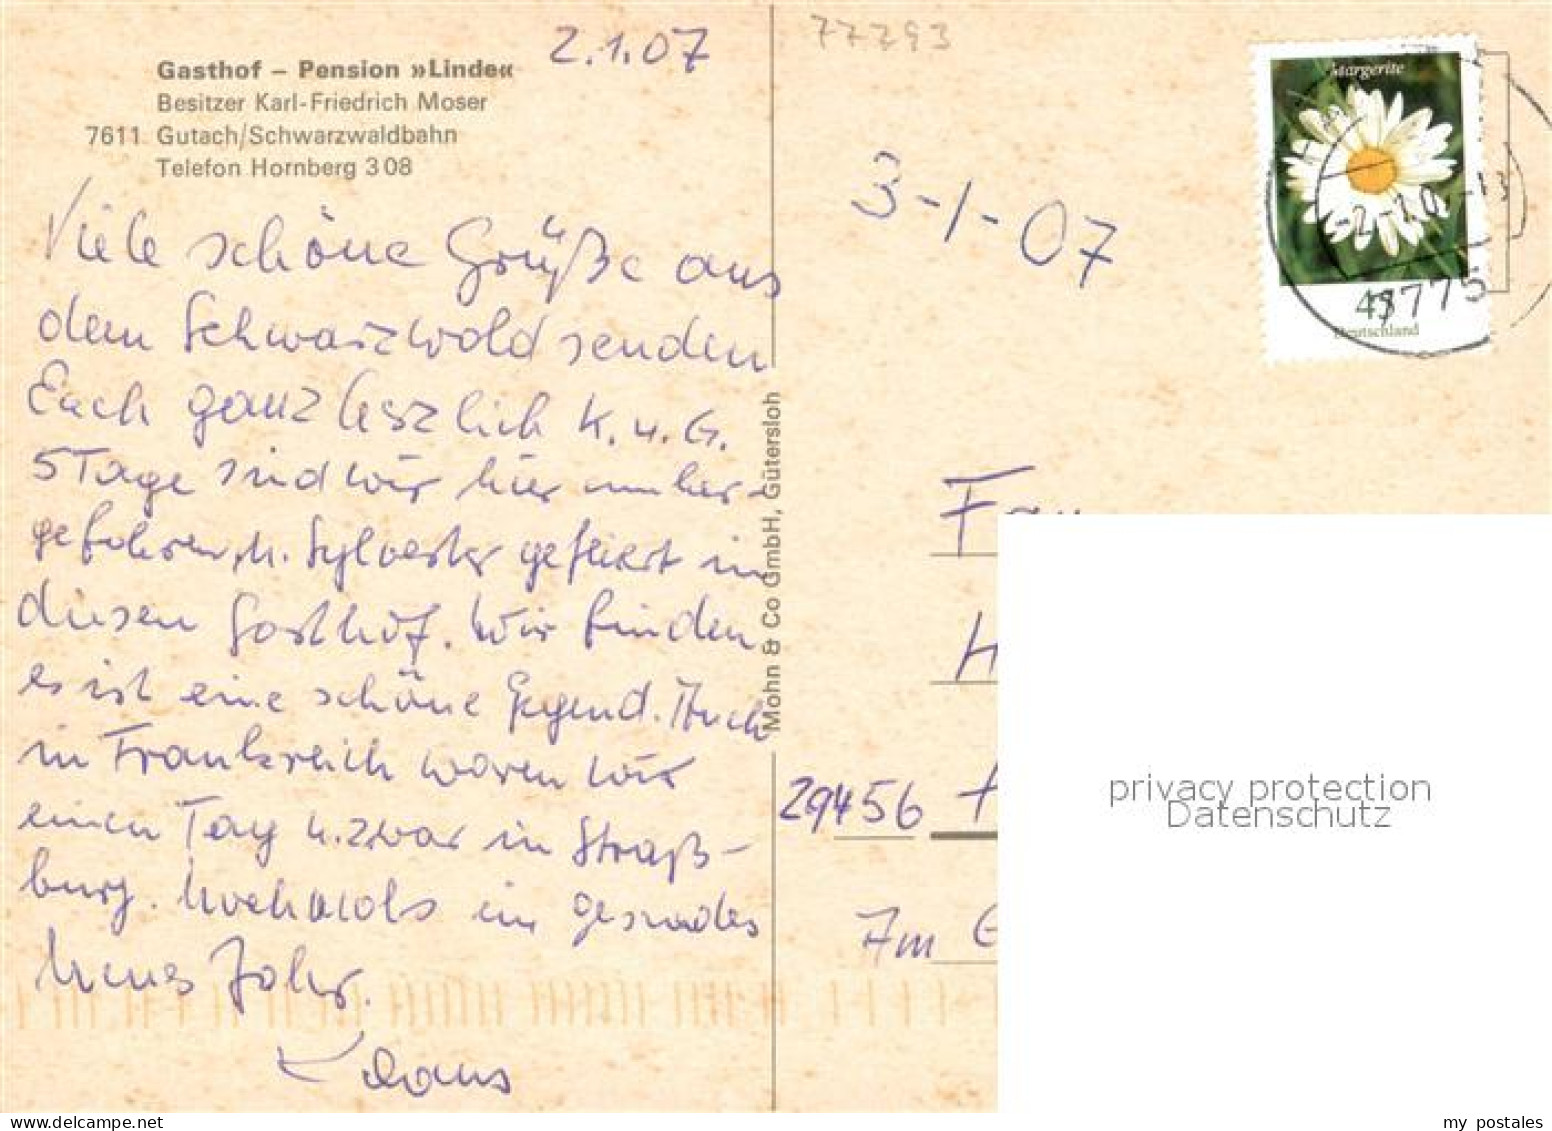 2.1.07
Gasthof – Pension »Linde«
Besitzer Karl-Friedrich Moser
7611 Gutach/Schwarzwaldbahn
Telefon Hornberg 308
Viele schöne Grüße aus
dem Schwarzwald senden
Euch ganz herzlich K. u. G.
5 Tage sind wir hier umher-
gefahren, u. Sylvester gefeiert in
diesen Gasthof. Wir finden
es ist eine schöne Gegend. Auch
in Frankreich waren wir
einen Tag u. zwar in Straß-
burg. Nochmals ein gesundes
Neues Jahr.
Klaus
Mohn & Co GmbH, Gütersloh
77793
3-1-07
Margerite
45
Deutschland
Frau
H
29456
privacy protection
Datenschutz
my postales